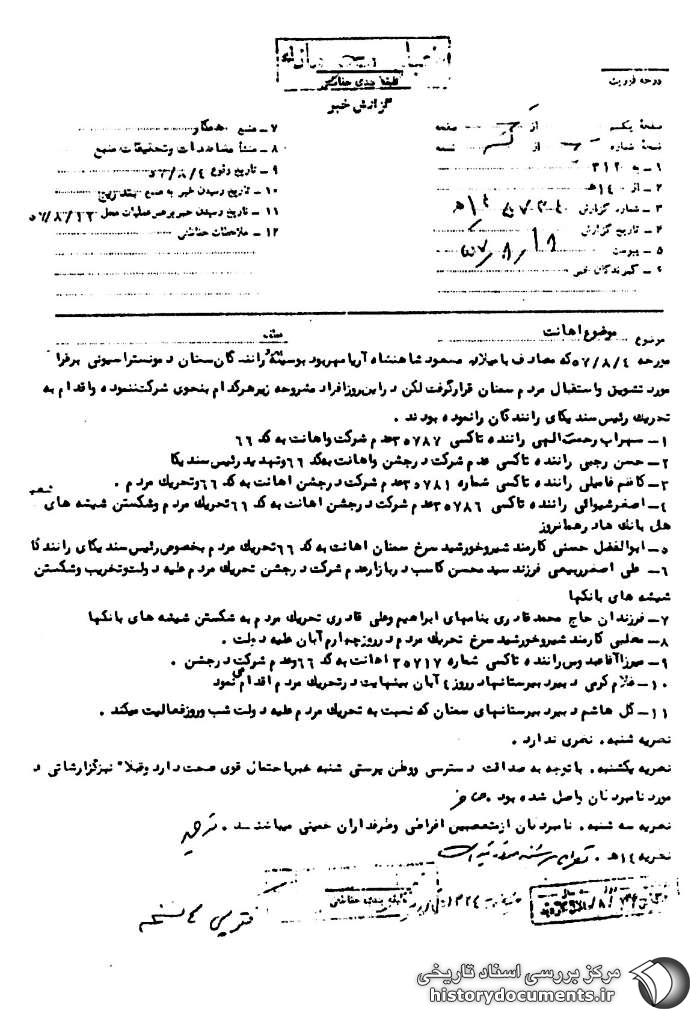 طبقه بندی حفاظتی
گزارش خبر
درجه فوریت
صفحه یکم از صفحه
نسخه شماره از نسخه
۱ـ به ۳۱۲
۲ـ از ۱۴۰ هـ
۳ـ شماره گزارش
۴ـ تاریخ گزارش ۵۷/۸/۱۸
۵ـ پیوست
۶ـ گیرندگان خبر
۷ـ منبع همکار
۸ـ منشأ مشاهدات و تحقیقات منبع
۹ـ تاریخ وقوع ۵۷/۸/۴
۱۰ـ تاریخ رسیدن خبر به منبع بتدریج
۱۱ـ تاریخ رسیدن خبر برهبر عملیات محل ۵۷/۸/۱۳
۱۲ـ ملاحظات حفاظتی
موضوع موضوع اهانت
مورخه ۵۷/۸/۴ که مصادف با میلاد مسعود شاهنشاه آریامهر بود بوسیله رانندگان سمنان دمونستراسیونی برقرا
مورد تشویق و استقبال مردم سمنان قرار گرفت لکن در این روز افراد مشروحه زیر هرکدام بنحوی شرکت ننموده و اقدام به
تحریک رئیس سندیکای رانندگان را نموده بودند .
۱ـ سهراب رحمت الهی راننده تاکسی ۳۵۷۸۷ عدم شرکت و اهانت به کد ۶۶
۲ـ حسن رجبی راننده تاکسی عدم شرکت در جشن و اهانت به کد ۶۶ و تهدید رئیس سندیکا
۳ـ کاظم فامیلی راننده تاکسی شماره ۳۵۷۸۱ عدم شرکت در جشن اهانت به کد ۶۶ و تحریک مردم .
۴ـ اصغر شیوائی راننده تاکسی ۳۵۷۸۶ عدم شرکت در جشن اهانت به کد ۶۶ تحریک مردم و شکستن شیشه های شعب
های بانک ها در همانروز
۵ـ ابوالفضل حسنی کارمند شیر و خورشید سرخ سمنان اهانت به کد ۶۶ تحریک مردم بخصوص رئیس سندیکای رانندگا
۶ـ علی اصغر ربیعی فرزند سید محسن کاسب در بازار عدم شرکت در جشن تحریک مردم علیه دولت و تخریب و شکستن
شیشه های بانکها
۷ـ فرزندان حاج محمد قادری بنامهای ابراهیم و علی قادری تحریک مردم به شکستن شیشه های بانکها
۸ـ معلمی کارمند شیر و خورشید سرخ تحریک مردم در روز چهارم آبان علیه دولت .
۹ـ میرزا آقا صدوس راننده تاکسی شماره ۳۵۷۱۷ اهانت به کد ۶۶ و عدم شرکت در جشن .
۱۰ـ غلام کرمی دبیر دبیرستانها در روز ۴ آبان بینهایت در تحریک مردم اقدام می نمود
۱۱ـ گل هاشم دبیر دبیرستانهای سمنان که نسبت به تحریک مردم علیه دولت شب و روز فعالیت میکند .
نظریه شنبه . نظری ندارد .
نظریه یکشنبه . با توجه به صداقت دسترسی و وطن پرستی شنبه خبر باحتمال قوی صحت دارد و قبلا" نیز گزارشاتی د
مورد نامبردگان واصل شده بود .
نظریه سه شنبه . نامبردگان از متعصبین افراطی و طرفداران خمینی میباشند .
نظریه ۱۴ هـ .
طبقه بندی حفاظتی
مرکز بررسی اسناد تاریخی
historydocuments.ir